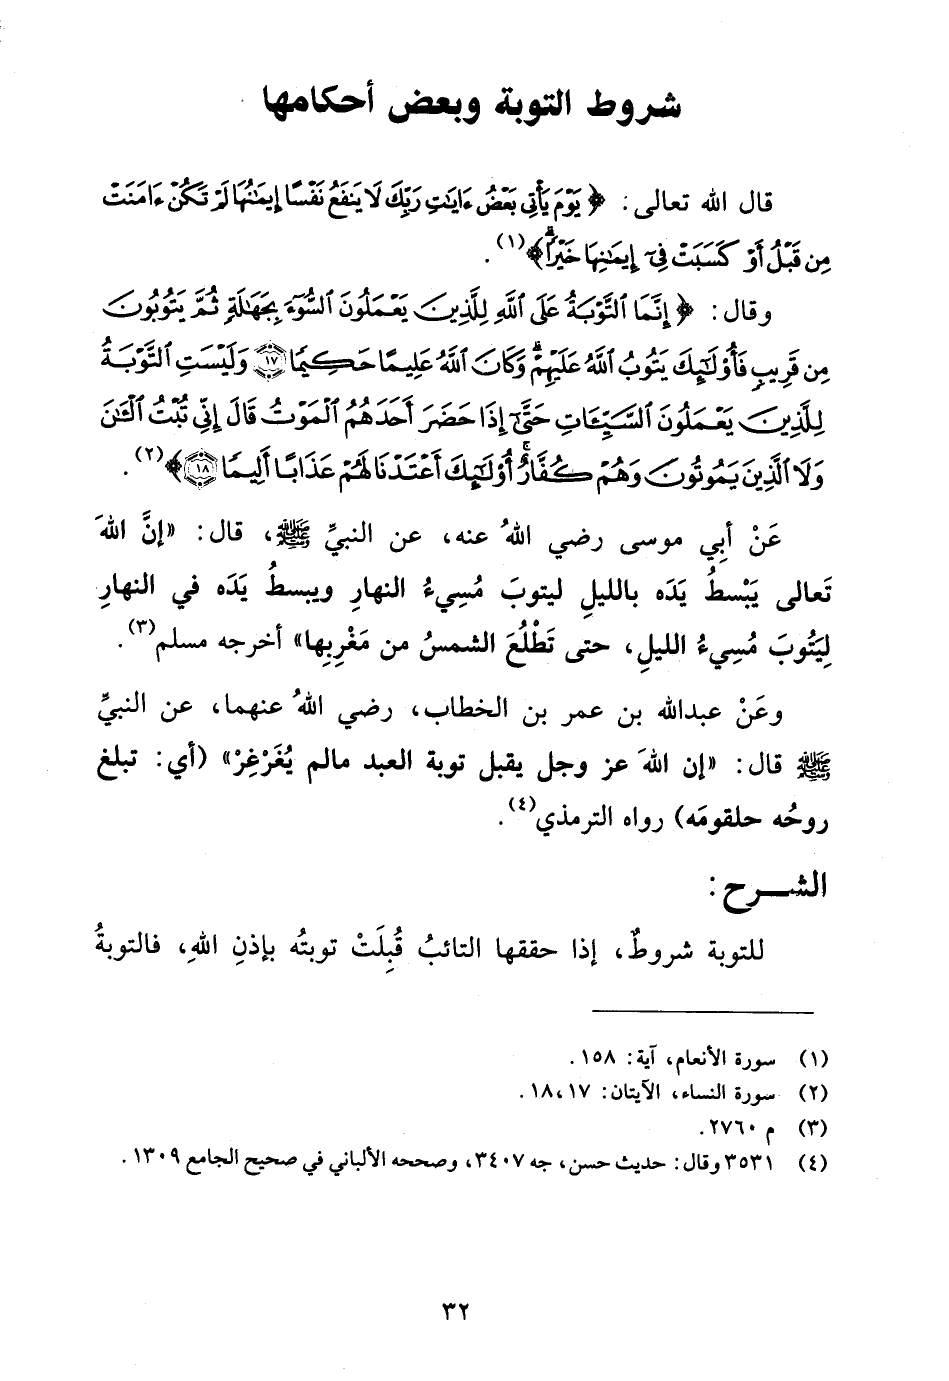 شروط التوبة وبعض أحكامها
قال الله تعالى: ﴿ يَوْمَ يَأْتِى بَعْضُ ءَايَٰتِ رَبِّكَ لَا يَنفَعُ نَفْسًا إِيمَٰنُهَا لَمْ تَكُنْ ءَامَنَتْ
مِن قَبْلُ أَوْ كَسَبَتْ فِىٓ إِيمَٰنِهَا خَيْرًاۗ﴾(١).
وقال: ﴿ إِنَّمَا ٱلتَّوْبَةُ عَلَى ٱللَّهِ لِلَّذِينَ يَعْمَلُونَ ٱلسُّوٓءَ بِجَهَٰلَةٍ ثُمَّ يَتُوبُونَ
مِن قَرِيبٍ فَأُو۟لَٰٓئِكَ يَتُوبُ ٱللَّهُ عَلَيْهِمْۗ وَكَانَ ٱللَّهُ عَلِيمًا حَكِيمًا ١٧ وَلَيْسَتِ ٱلتَّوْبَةُ
لِلَّذِينَ يَعْمَلُونَ ٱلسَّيِّـَٔاتِ حَتَّىٰٓ إِذَا حَضَرَ أَحَدَهُمُ ٱلْمَوْتُ قَالَ إِنِّى تُبْتُ ٱلْـَٰٔنَ
وَلَا ٱلَّذِينَ يَمُوتُونَ وَهُمْ كُفَّارٌۚ أُو۟لَٰٓئِكَ أَعْتَدْنَا لَهُمْ عَذَابًا أَلِيمًا ١٨ ﴾(٢).
عَنْ أَبِي موسى رضي اللهُ عنه، عن النبيِّ ﷺ، قال: «إنَّ اللهَ
تَعالى يَبْسطُ يَدَه بالليلِ ليتوبَ مُسِيءُ النهارِ ويبسطُ يَدَه في النهارِ
لِيَتُوبَ مُسِيءُ الليلِ، حتى تَطْلُعَ الشمسُ من مَغْرِبِها» أخرجه مسلم(٣).
وعَنْ عبدالله بن عمر بن الخطاب، رضي اللهُ عنهما، عن النبيِّ
ﷺ قال: «إن اللهَ عز وجل يقبل توبة العبد مالم يُغَرْغِرْ» (أي: تبلغ
روحُه حلقومَه) رواه الترمذي(٤).
الشـــرح:
للتوبة شروطٌ، إذا حققها التائبُ قُبِلَتْ توبتُه بإذنِ اللهِ، فالتوبةُ
(١) سورة الأنعام، آية: ١٥٨.
(٢) سورة النساء، الآيتان: ١٧، ١٨.
(٣) م ٢٧٦٠.
(٤) ٣٥٣١ وقال: حديث حسن، جه ٣٤٠٧، وصححه الألباني في صحيح الجامع ١٣٠٩.
٣٢